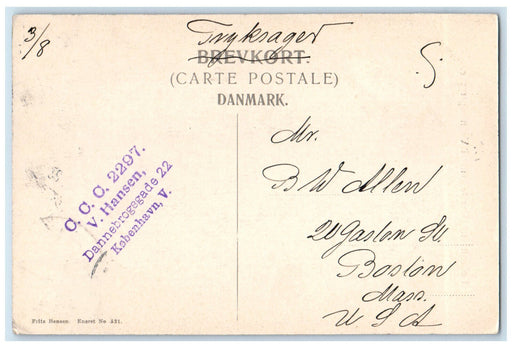 3/8
Tryksager
BREVKORT.
(CARTE POSTALE)
DANMARK.
5
C. C. C. 2297.
V. Hansen,
Dannebrogsgade 22
København, V.
Mr.
B W Allen
20 Gaston St.
Boston
Mass.
U S A
Fritz Hansen. Eneret No. 521.